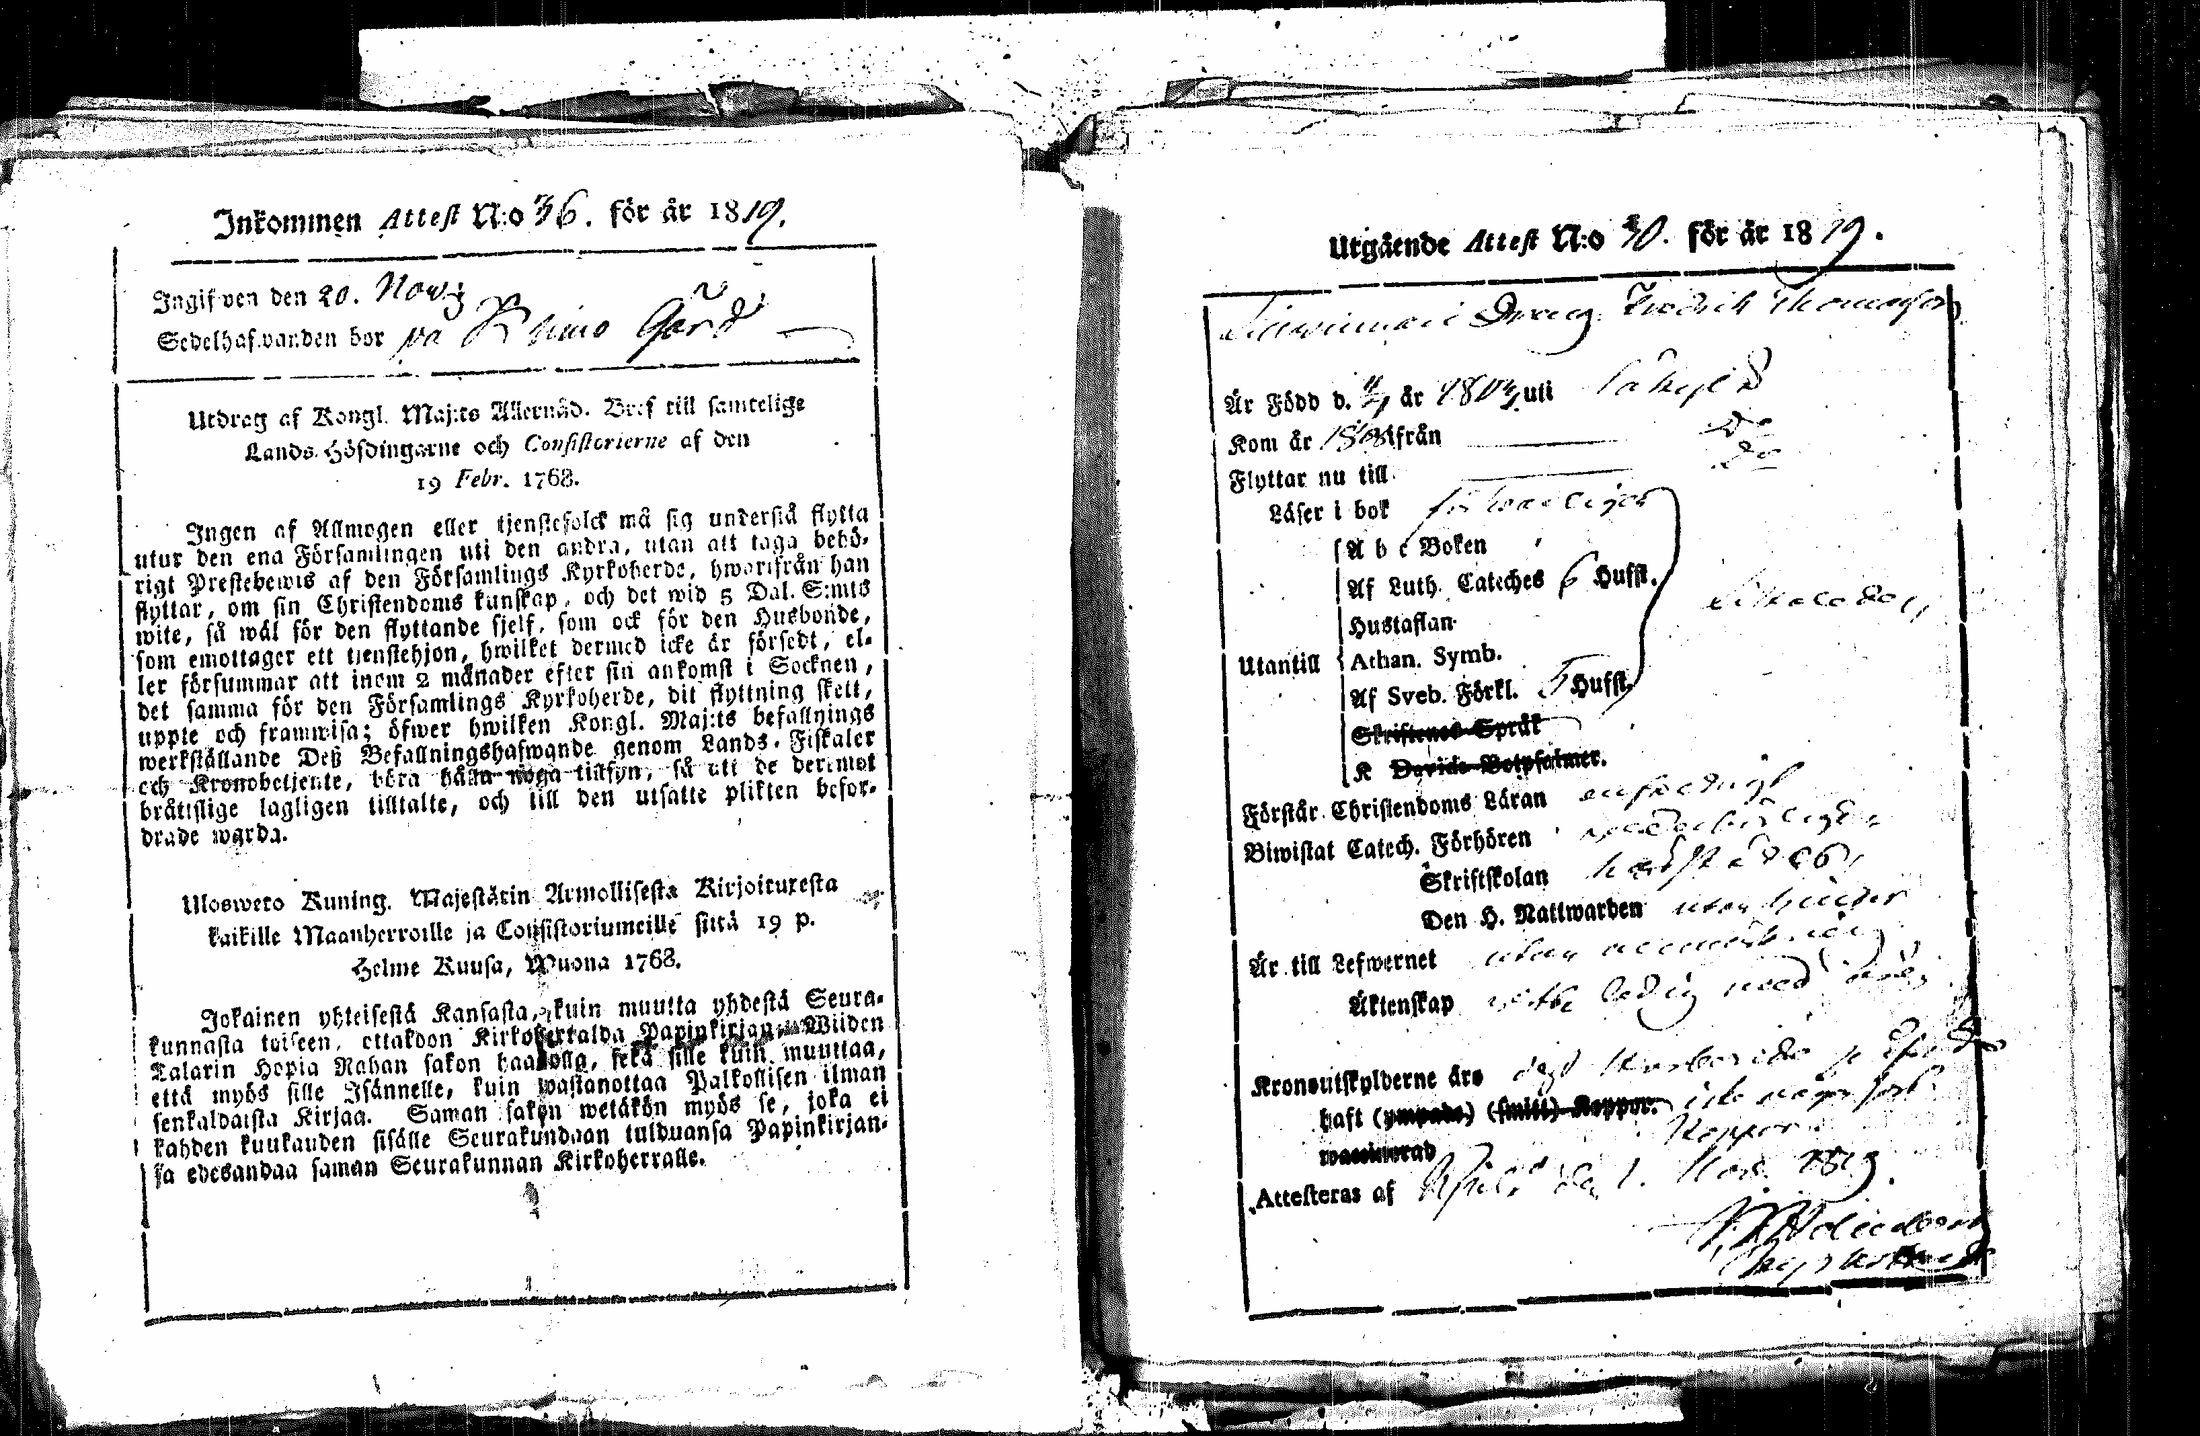 Inkommen Attest N:o 36. för år 1819.
Ingifven den 20. Nov.
Sedelhafvanden bor på Kjimo Gård
Utdrag af Kongl. Maj:ts Allernåd. Bref till samtelige
Lands-Höfdingarne och Consistorierne af den
19 Febr. 1768.
Ingen af Allmogen eller tjenstefolck må sig understå flytta
utur den ena Församlingen uti den andra, utan att taga behö-
rigt Prestebewis af den Församlings Kyrkoherde, hworifrån han
flyttar, om sin Christendoms kunskap, och det wid 5 Dal. S:mts
wite, så wäl för den flyttande sjelf, som ock för den Husbonde,
som emottager ett tjenstehjon, hwilket dermed icke är försedt, el-
ler försummar att inom 2 månader efter sin ankomst i Socknen,
det samma för den Församlings Kyrkoherde, dit flyttning skett,
uppte och framwisa; öfwer hwilken Kongl. Maj:ts befallnings
werkställande Deß Befallningshafwande genom Lands-Fiskaler
och Kronobetjente, böra hålla noga tillsyn, så att de deremot
bråttslige lagligen tilltalte, och till den utsatte plikten befor-
drade warda.
Uloswero Kuning. Majestätin Armollisesta Kirjoituxesta
kaikille Maanherroille ja Consistoriumeille siitä 19 p.
Helme Kuusa, Wuona 1768.
Jokainen yhteisestä Kansasta, kuin muutta yhdestä Seura-
kunnasta toiseen, ottakoon Kirkoherralda Papinkirjan Wiiden
Talarin Hopia Rahan sakon haasolla, sekä sille kuin muuttaa,
että myös sille Isännelle, kuin wastanottaa Palkollisen ilman
senkaldaista Kirjaa. Saman sakon wetäkön myös se, joka ei
kahden kuukauden sisälle Seurakundaan tulduansa Papinkirjan-
sa edesandaa saman Seurakunnan Kirkoherralle.
Utgående Attest N:o 30. för år 1819.
Dräng Fredrik Thomasson
Är Född d. år 1803 uti Säkylä
Kom år ifrån Do
Flyttar nu till Do
Läser i bok försvarligen
A b c Boken
Af Luth. Cateches 6 Hufst.
Hustaflan
Utantill Athan. Symb.
Af Sveb. Förkl. 5 Hufst.
Skriftenes Språk
K Davids Botpsalmer.
Förstår Christendoms Läran enfaldigt
Biwistat Catech. Förhören
Skriftskolan
Den H. Nattwarden utan hinder
Är till Lefwernet utan anmärkning
Äktenskap ledig med
Kronoutskylderne äro
haft (ympade) (smitt) Koppor. icke
Koppor
waccinerad
Attesteras af den 1. Nov. 1819.